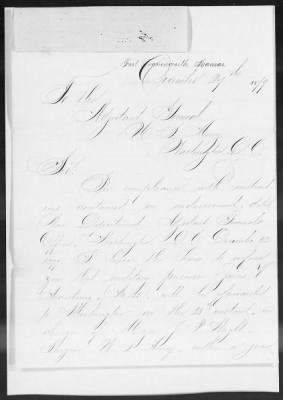 Fort Leavenworth, Kansas
December 27th 1879
To the
Adjutant General
U. S. Army
Washington D. C.
Sir:
In compliance with instruc
tions contained in endorsement, dated
War Department, Adjutant General's
Office, Washington D. C. December 22
I have the honor to inform
you that military prisoner James
will be forwarded
to Washington on the 28th instant, in
charge of Major J. P. Wright
Surgeon U. S. Army, with a guard